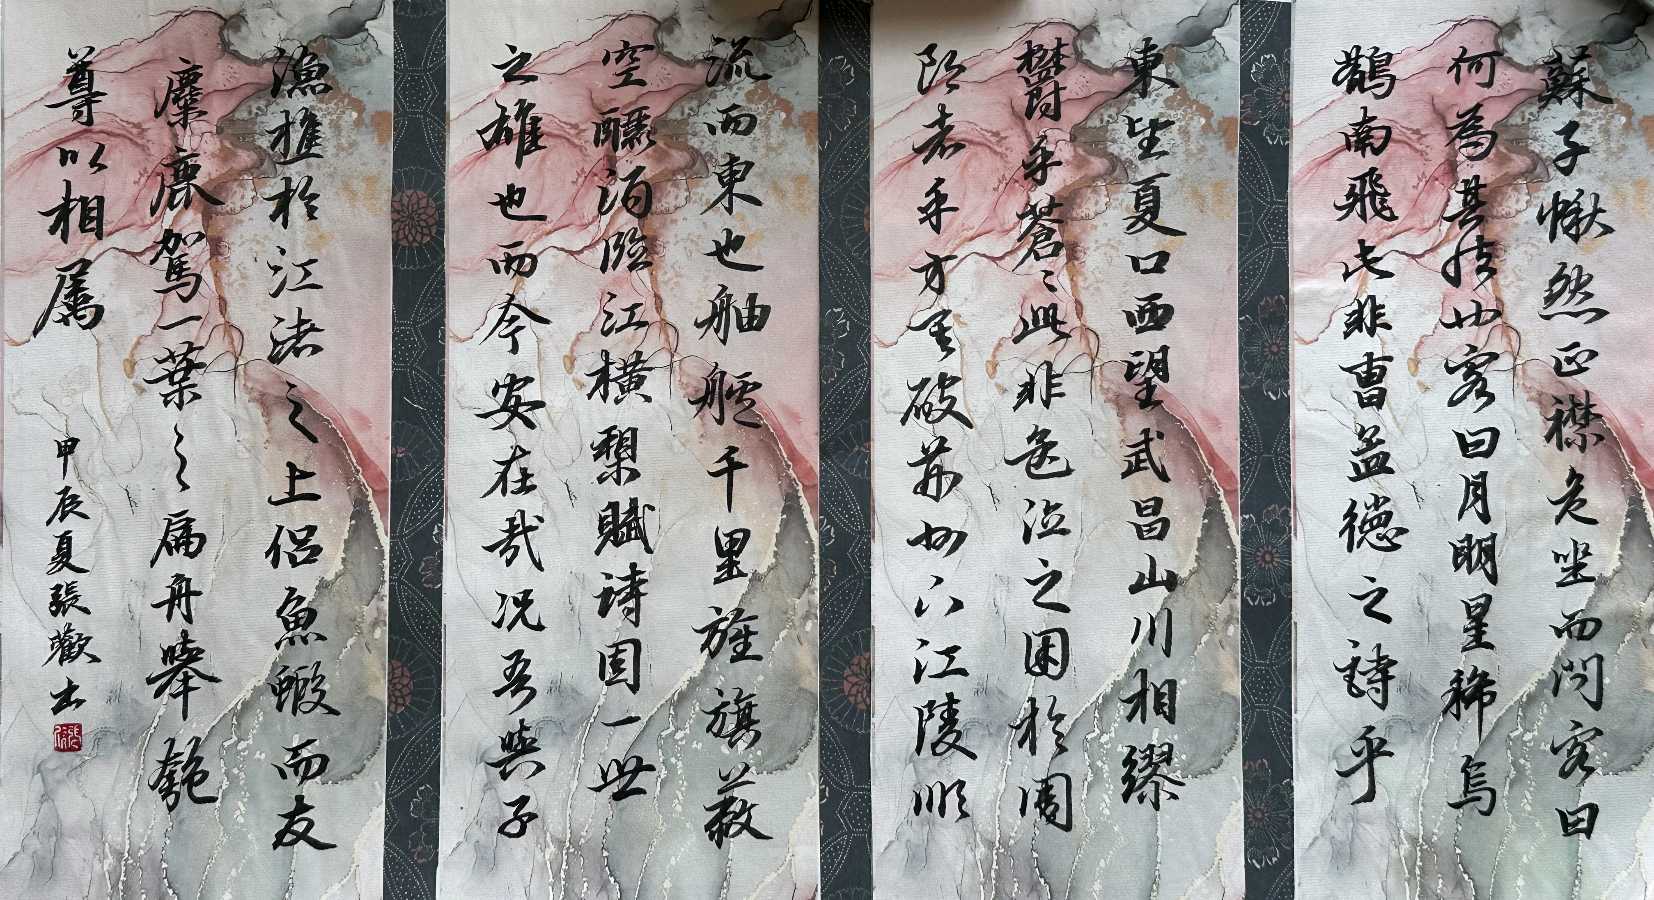 蘇子愀然正襟危坐而問客曰
何為其然也客曰月明星稀烏
鵲南飛此非曹孟德之詩乎
東望夏口西望武昌山川相繆
鬱乎蒼〻此非孟德之困於周
郎者乎方其破荊州下江陵順
流而東也舳艫千里旌旗蔽
空釃酒臨江橫槊賦詩固一世
之雄也而今安在哉況吾與子
漁樵於江渚之上侶魚蝦而友
麋鹿駕一葉之扁舟舉匏
尊以相屬
甲辰夏張歡書